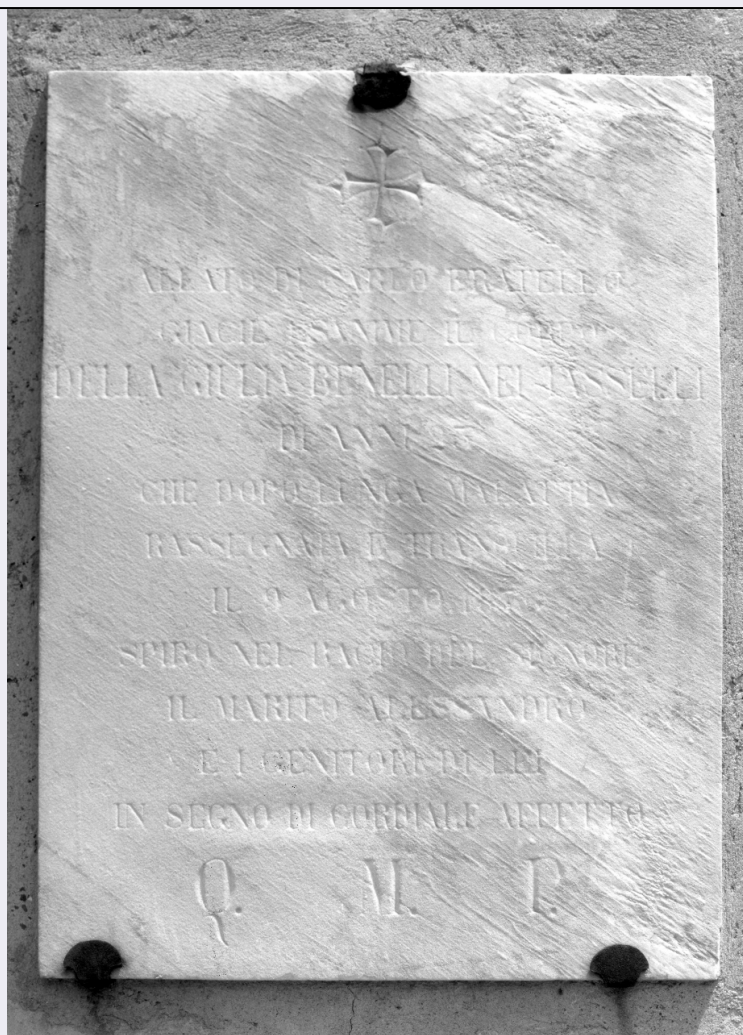 ALLATO DI CARLO FRATELLO
GIACIE ESANIME IL CORPO
DELLA GIULIA BENELLI NEI TASSELLI
DI ANNI 23
CHE DOPO LUNGA MALATTIA
RASSEGNATA E TRANQUILLA
IL 9 AGOSTO
SPIRÒ NEL BACIO DEL SIGNORE
IL MARITO ALESSANDRO
E I GENITORI DI LEI
IN SEGNO DI CORDIALE AFFETTO
Q. M. P.